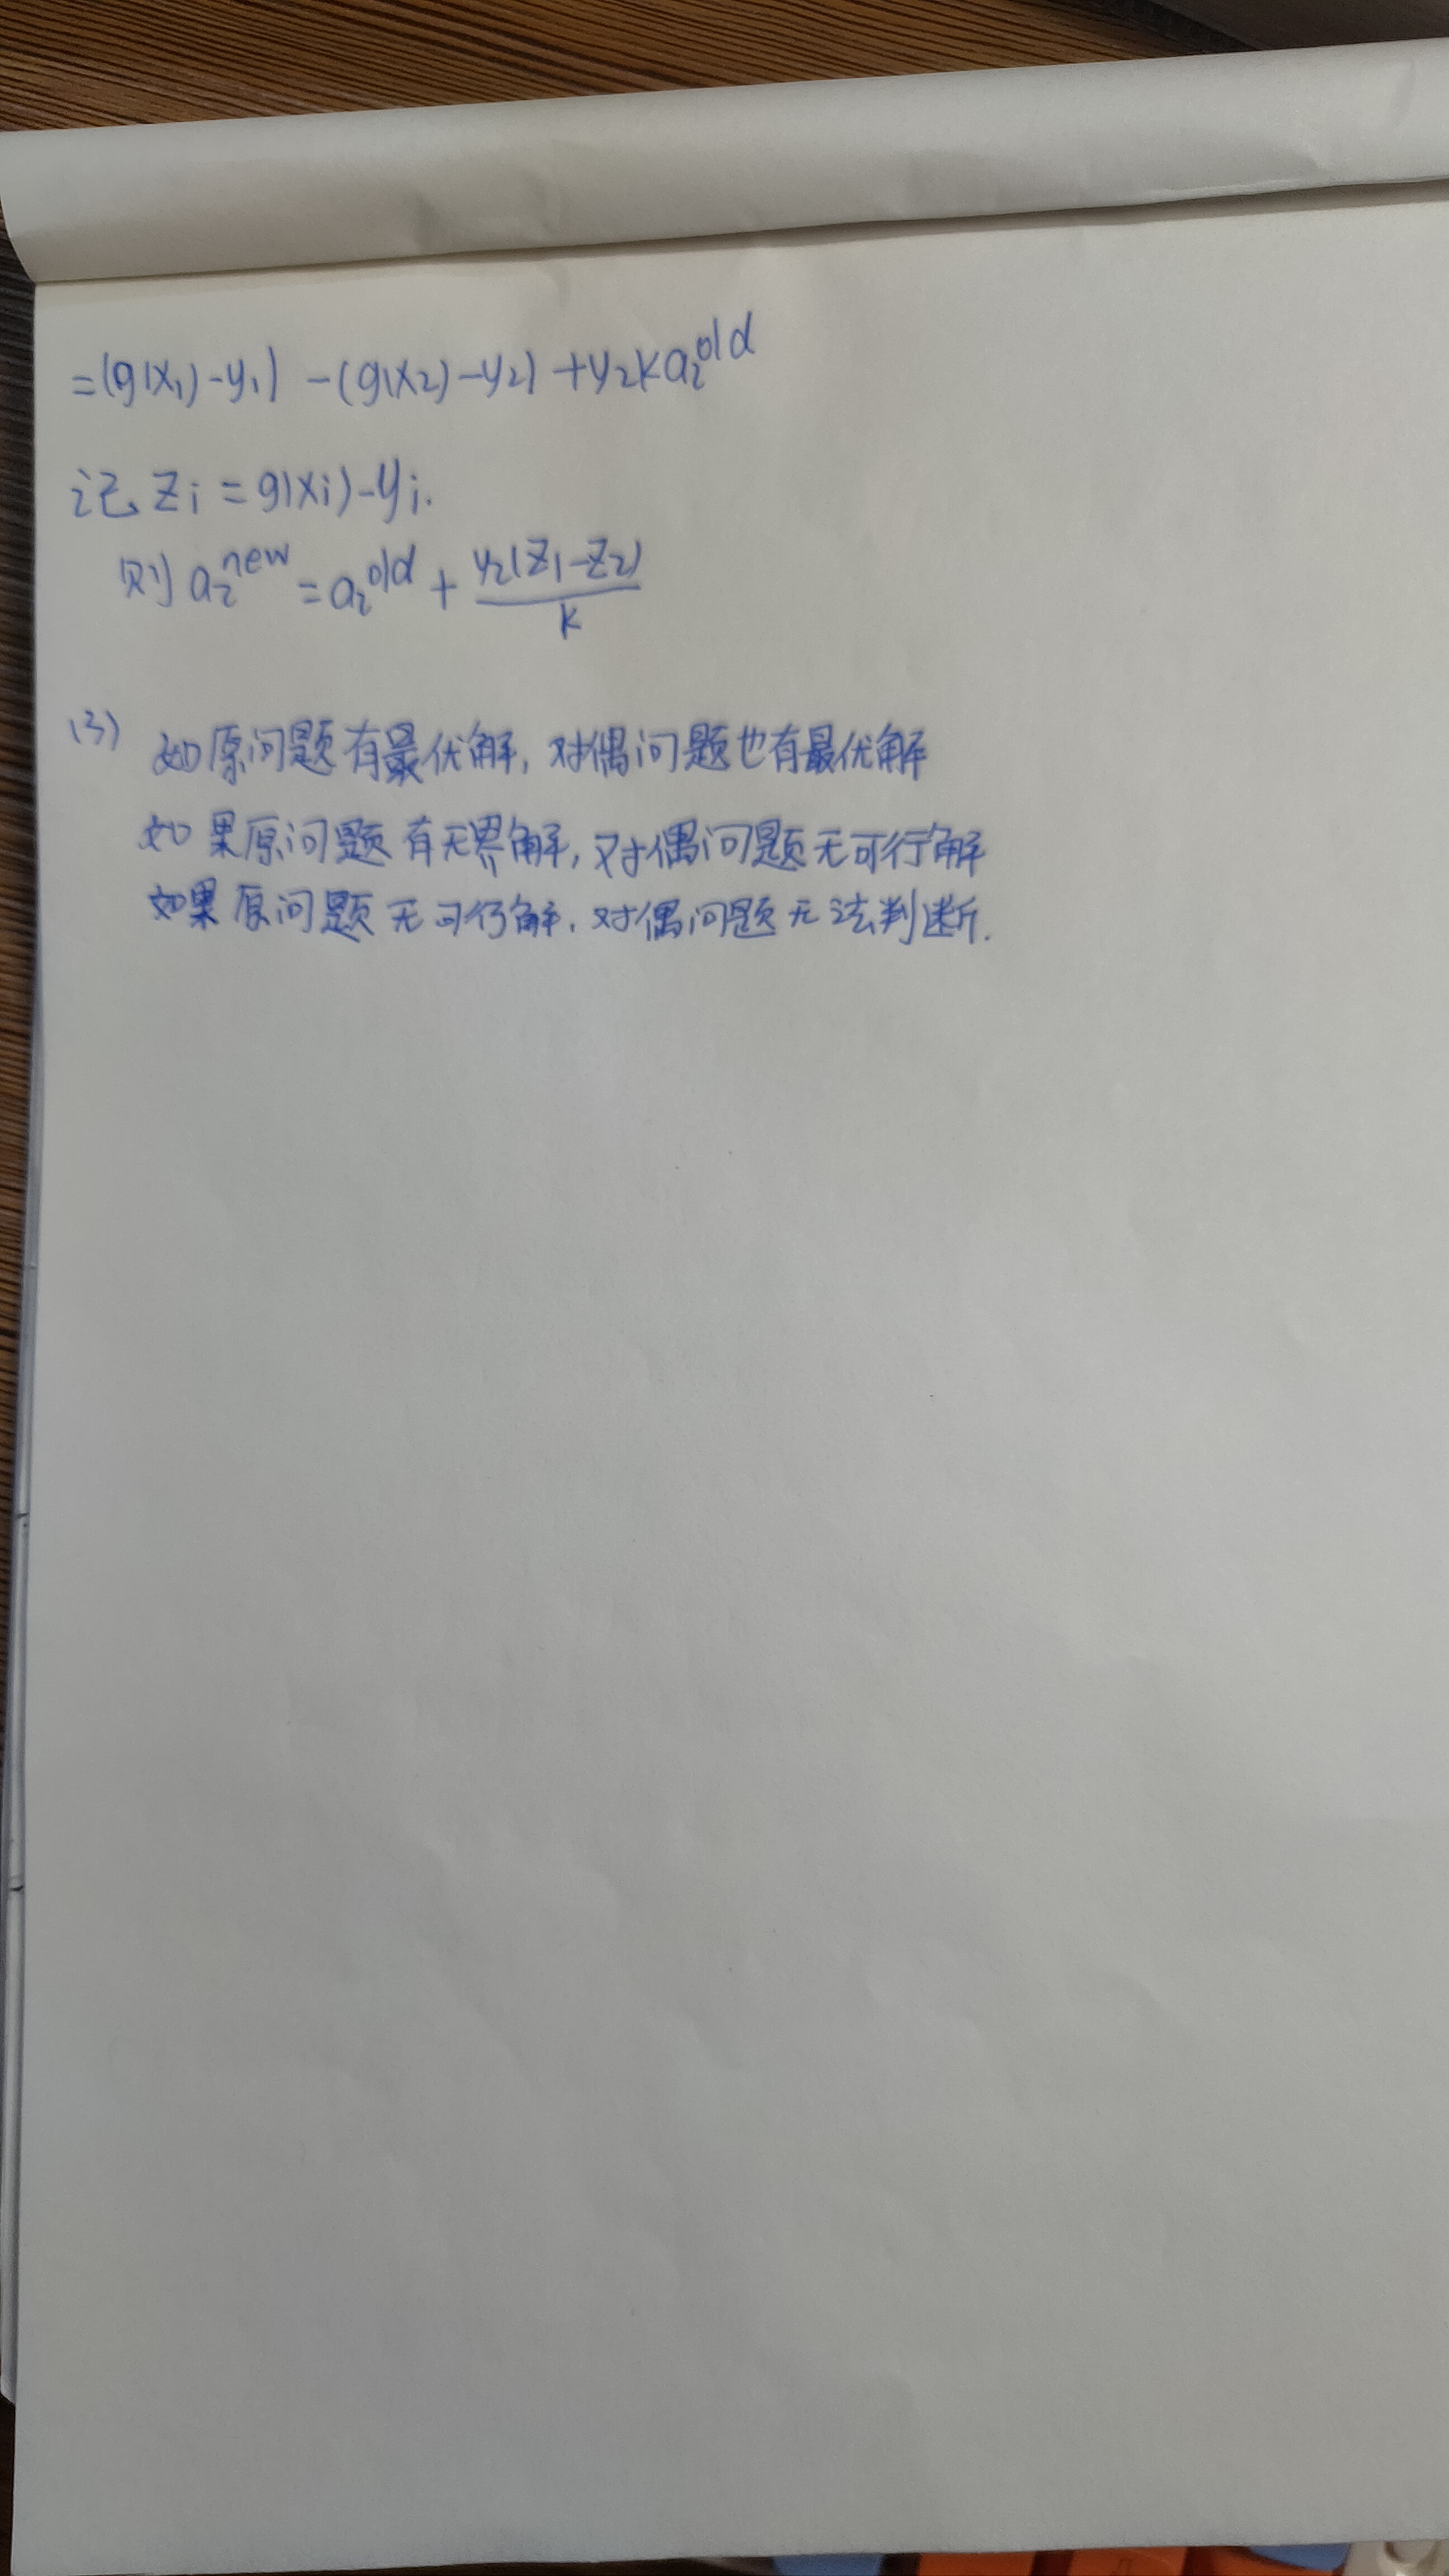 =(g(x₁)-y₁)-(g(x₂)-y₂)+y₂ka₂^old
记 zᵢ=g(xᵢ)-yᵢ.
则 a₂^new=a₂^old+y₂(z₁-z₂)/k
(3) 如原问题有最优解,对偶问题也有最优解
如果原问题有无界解,对偶问题无可行解
如果原问题无可行解,对偶问题无法判断.